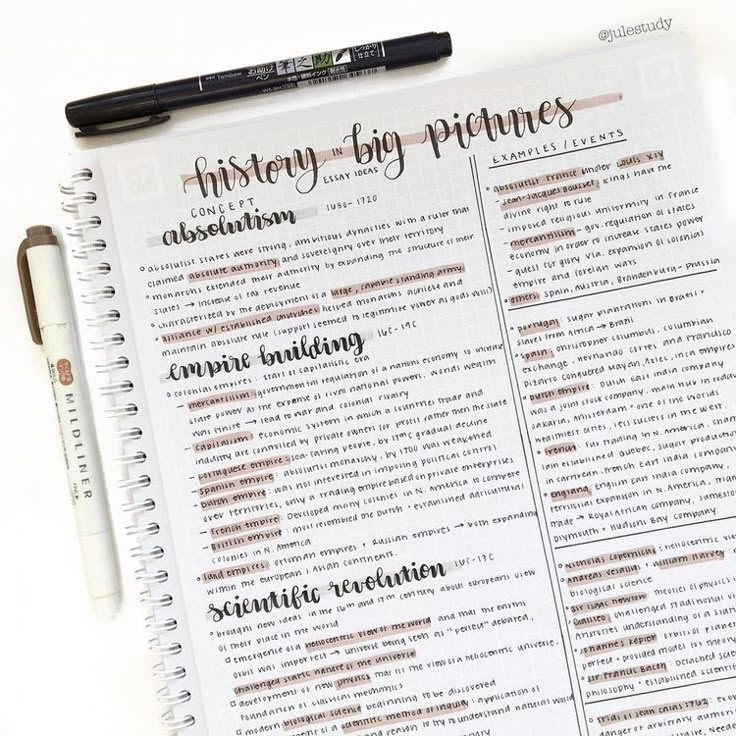 @julestudy
Tombow
筆之助
しっかり
仕立て
お助け
ペン
水性・顔料インク
history IN big pictures
ESSAY IDEAS
CONCEPT
absolutism 1650-1720
▫ absolutist states were strong, ambitious dynasties with a ruler that
claimed absolute authority and sovereignty over their territory
▫ monarchs extended their authority by expanding the structure of their
states → increase of tax revenue
▫ characterized by the deployment of large, capable standing army
▫ alliance w/ established churches helped monarchs achieve and
maintain absolute rule (support seemed to legitimize power as god's will)
empire building 16C-19C
▫ colonial empires: start of capitalistic era
- mercantilism: governmental regulation of a nations economy to increase
state power at the expense of rival national powers. Worlds wealth
was finite → lead to war and colonial rivalry
- capitalism: economic system in which a countries trade and
industry are controlled by private owners for profit rather then the state
- portuguese empire: sea-faring people, by 17th C gradual decline
- spanish empire: absolutist monarchy, by 1700 was weakened
- Dutch empire: was not interested in imposing political control
over territories, only a trading empire based on private enterprises
- French empire: Developed many colonies in N. America to compete
- British empire: most resembled the Dutch + established agricultural
colonies in N. America
▫ land empires: ottoman empires + Russian empires → both expanding
within the european + Asian continents.
scientific revolution 16C-17C
▫ brought new ideas in the 16th and 17th century about europeans view
of their place in the world
▫ emergence of a heliocentric view of the world and that the earths
orbit was imperfect → universe being seen as "perfect" debated.
challenged static nature of the universe
▫ development of new physics math for the view of a heliocentric universe.
foundation of classical mechanics
▫ modern biological science beginning to be discovered
of a scientific method of inquiry: application of
and reason to try to understand natural world
EXAMPLES / EVENTS
▫ absolutist France under Louis XIV
- Jean-Jacques Bousset: Kings have the
divine right to rule
- imposed religious uniformity in France
- mercantilism - gov. regulation of states
economy in order to increase states power
- quest for glory via. expansion of colonial
empire and foreign wars
▫ others: spain, austria, Brandenburg-Prussia
▫ portugal: sugar plantations in Brazil +
slaves from Africa → Brazil
▫ spain: christopher columbus, columbian
exchange, Hernando Cortes and Francisco
Pizarro conquered Mayan, Aztec, Inca empires
▫ Dutch empire: Dutch East India company
was a joint stock company, main hub in today
Jakarta, Amsterdam "one of the worlds
wealthiest cities, lots success in the west.
▫ French: fur trading in N. America,
established Québec, sugar production
in carribean, French East India company
▫ England: English East India company,
territorial expansion in N. America,
trade → Royal African company, Jamestown
Plymouth + Hudsons Bay company
▫ Nicholas Copernicus: heliocentric
Andreas Vesalius + William Harvey
biological science
▫ sir Isaac newton: theories of physics
▫ Galileo: challenged traditional
Aristotles understanding of a
▫ Johannes Kepler: orbits of planets
perfect + provided model for
▫ sir Francis Bacon: Detached
philosophy + established
trial of Jean Calas 1762:
danger of arbitrary
MILDLINER